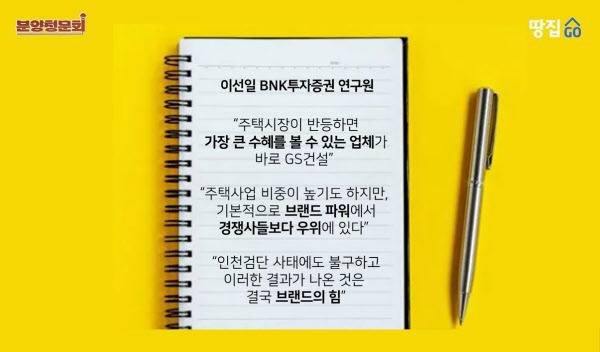 분양청문회
땅집GO
이선일 BNK투자증권 연구원
“주택시장이 반등하면
가장 큰 수혜를 볼 수 있는 업체가
바로 GS건설”
“주택사업 비중이 높기도 하지만,
기본적으로 브랜드 파워에서
경쟁사들보다 우위에 있다”
“인천검단 사태에도 불구하고
이러한 결과가 나온 것은
결국 브랜드의 힘”